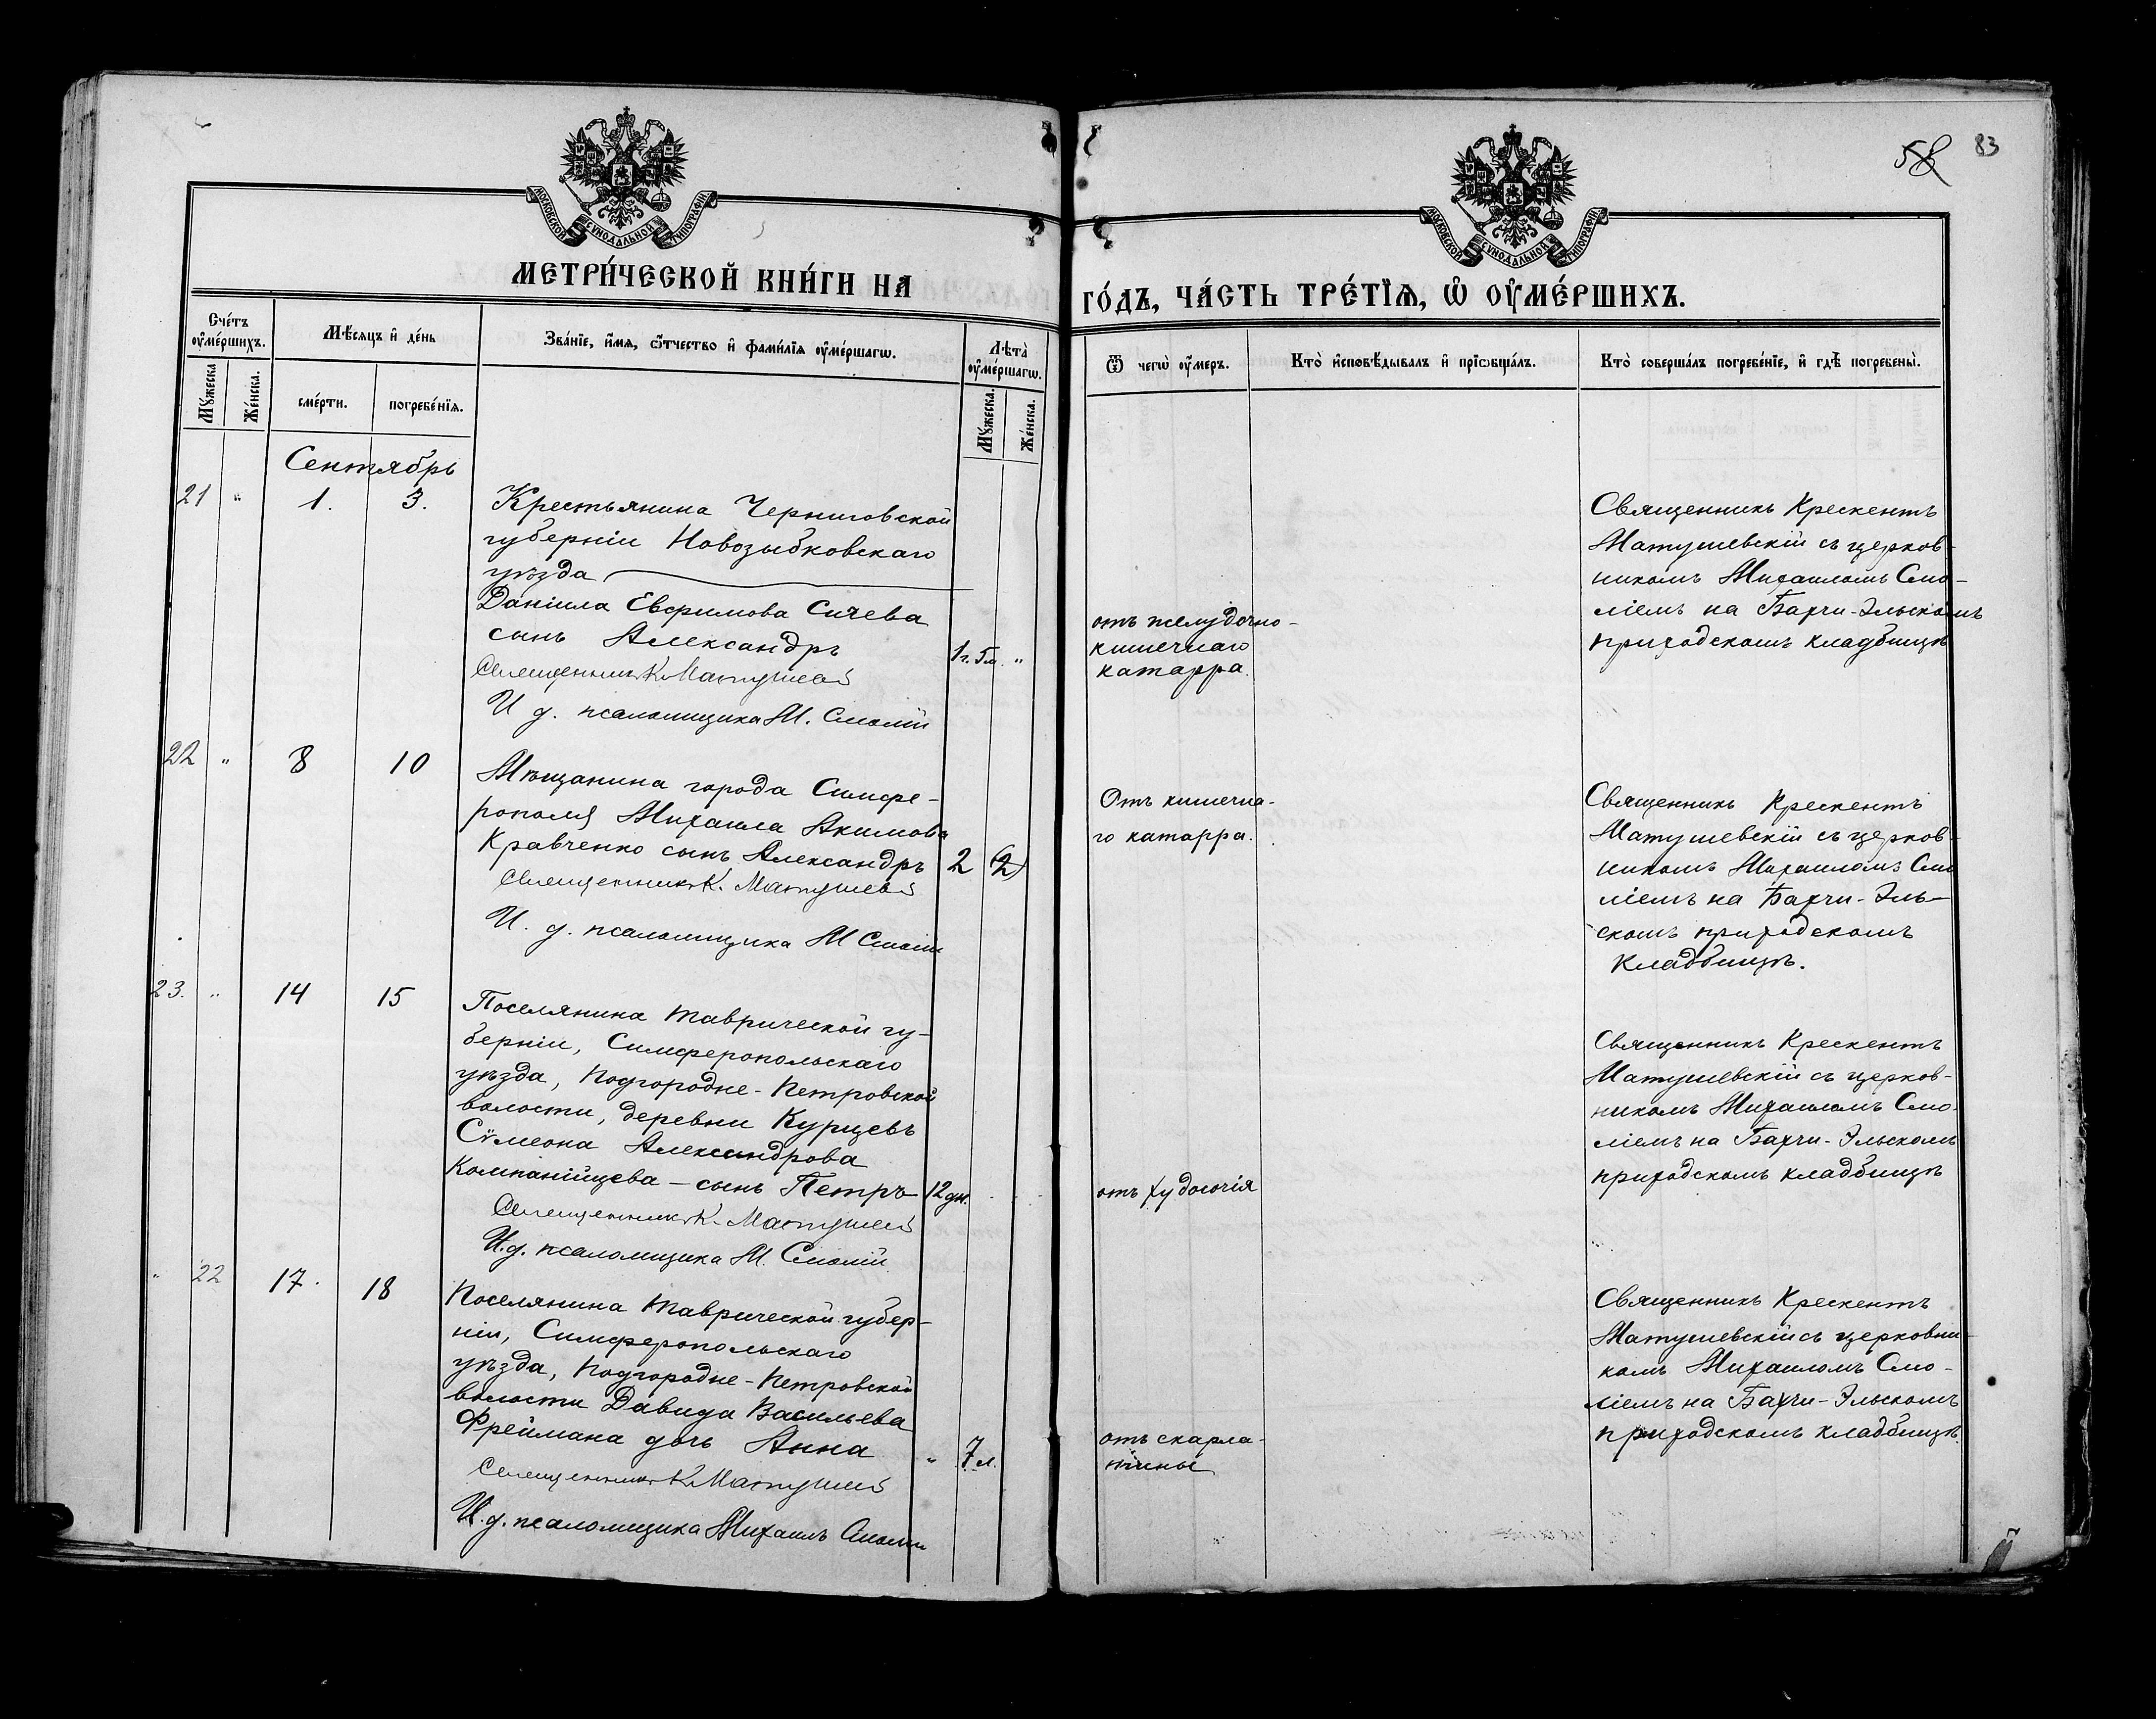 58 83
МОСКОВСКОЙ СѴНОДАЛЬНОЙ ТИПОГРАФІИ
МОСКОВСКОЙ СѴНОДАЛЬНОЙ ТИПОГРАФІИ
МЕТРИ́ЧЕСКОЙ КНИ́ГИ НА
ГО́ДЪ, ЧА́СТЬ ТРЕ́ТЇѦ, Ѡ҆ ОУ҆МЕ́РШИХЪ.
Сче́тъ оу҆ме́ршихъ.
Мꙋ́жеска
Же́нска.
Мѣ́сѧцъ и҆ де́нь
сме́рти.
погребе́нїѧ.
Зва́нїе, и҆́мѧ, ѻ҆́тчество и҆ фами́лїѧ оу҆ме́ршагѡ.
Лѣта̀ оу҆ме́ршагѡ.
Мꙋ́жеска.
Же́нска.
Ѿ чегѡ̀ оу҆́меръ.
Кто̀ и҆сповѣ́дывалъ и҆ прїѡбща́лъ.
Кто̀ соверша́лъ погребе́нїе, и҆ гдѣ̀ погребены̀.
Сентябрь
21 " 1. 3.
Крестьянина Черниговской
губерніи Новозыбковскаго
уѣзда
Даніила Евфимова Сичева
сынъ Александръ
1г. 5м. "
Священникъ К. Матушев
И д. псаломщика М. Смолій
отъ желудочно-
кишечнаго
катарра.
Священникъ Крескентъ
Матушевскій съ церков-
никомъ Михаиломъ Смо-
ліемъ на Бахчи-Эльскомъ
приходскомъ кладбищѣ
22 " 8 10
Мѣщанина города Симфе-
рополя Михаила Акимова
Кравченко сынъ Александръ
2 (2)
Священникъ К. Матушев
И. д. псаломщика М Смолій
Отъ кишечна-
го катарра.
Священникъ Крескентъ
Матушевскій съ церков-
никомъ Михаиломъ Смо
ліемъ на Бахчи-Эль-
скомъ приходскомъ
кладбищѣ.
23. " 14 15
Поселянина Таврической гу-
берніи, Симферопольскаго
уѣзда, Подгородне-Петровской
волости, деревни Курцевъ
Сѵмеона Александрова
Компанійцева - сынъ Петръ
12 дн.
Священникъ К. Матушев
И.д. псаломщика М. Смолій
отъ худосочія
Священникъ Крескентъ
Матушевскій съ церков-
никомъ Михаиломъ Смо-
ліемъ на Бахчи-Эльскомъ
приходскомъ кладбищѣ
" 22 17. 18
Поселянина Таврической губер-
ніи, Симферопольскаго
уѣзда, Подгородне-Петровской
волости Давида Васильева
Фреймана дочь Анна
" 7 л.
Священникъ К. Матушев
И.д. псаломщика Михаилъ Смолій
отъ скарла-
тины
Священникъ Крескентъ
Матушевскій съ церковни-
комъ Михаиломъ Смо-
ліемъ на Бахчи-Эльскомъ
приходскомъ кладбищѣ.